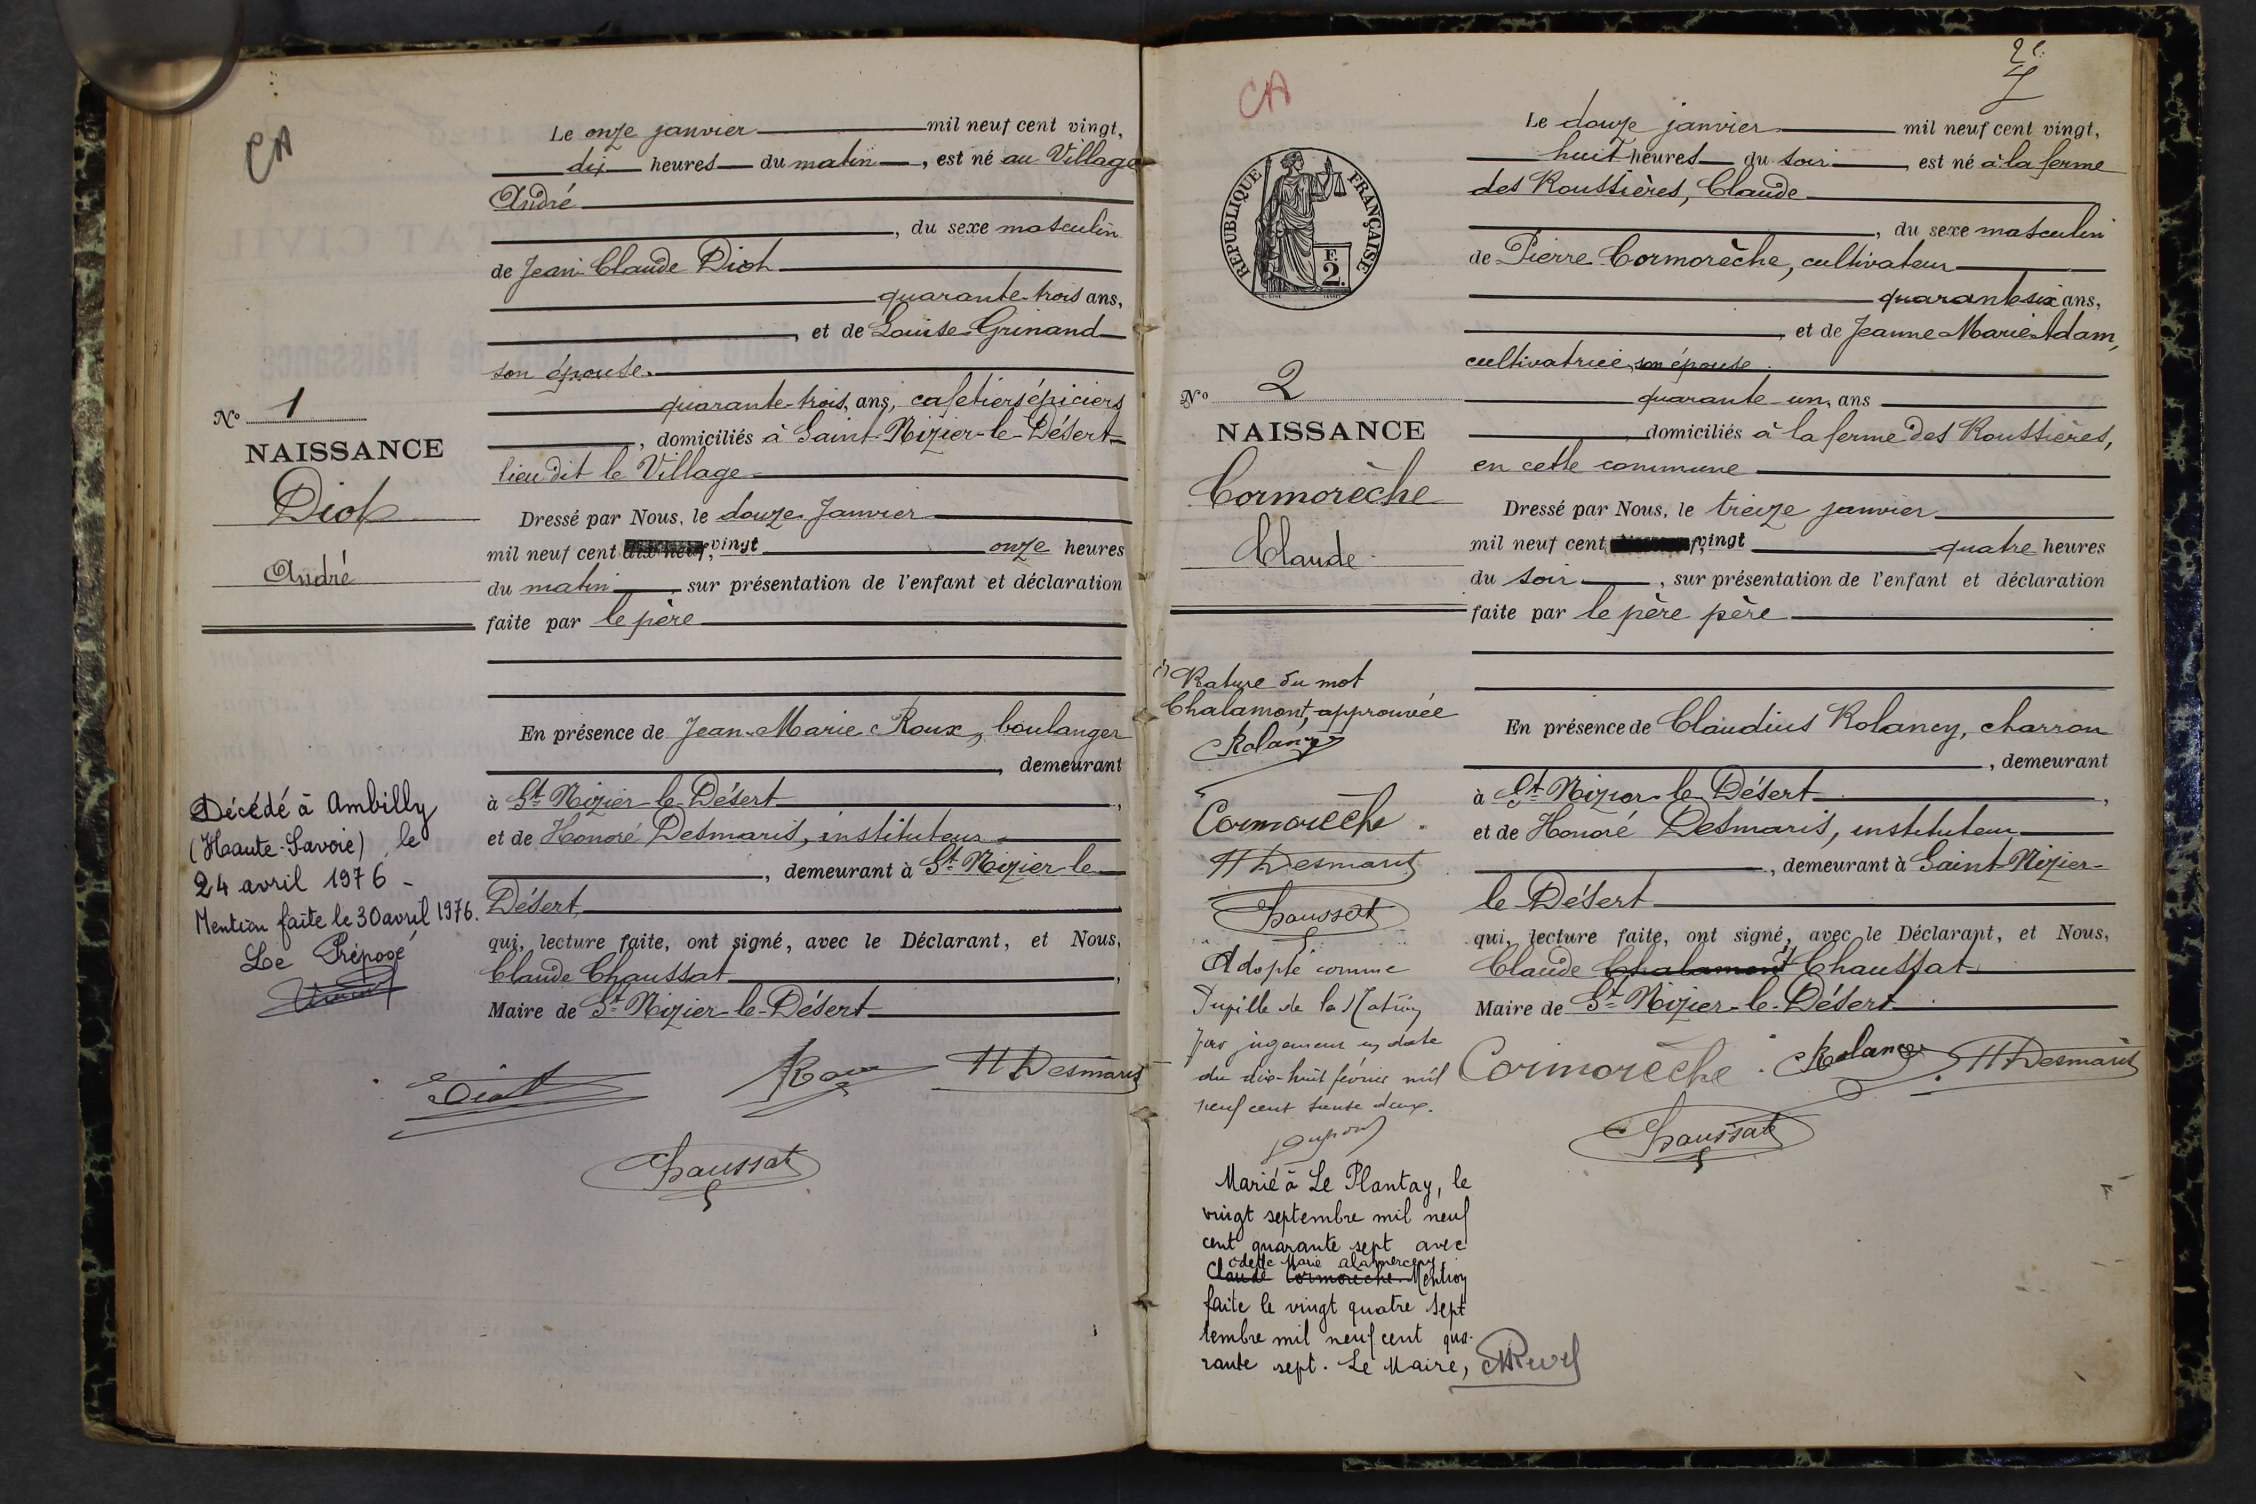 CA
Le onze janvier mil neuf cent vingt,
dix heures du matin, est né au Village
André
, du sexe masculin
de Jean Claude Diot
quarante-trois ans,
, et de Louise Grinand
son épouse.
quarante-trois, ans, cafetiers épiciers
, domiciliés à Saint-Nizier-le-Désert
lieu dit le Village
Dressé par Nous, le douze Janvier
mil neuf cent dix-neuf, vingt onze heures
du matin, sur présentation de l'enfant et déclaration
faite par le père
En présence de Jean-Marie Roux, boulanger
, demeurant
à St Nizier-le-Désert,
et de Honoré Desmaris, instituteur
, demeurant à St Nizier-le
Désert
qui, lecture faite, ont signé, avec le Déclarant, et Nous,
Claude Chaussat,
Maire de St Nizier-le-Désert
Diot Roux H Desmaris
Chaussat
No 1
NAISSANCE
Diot
André
Décédé à Ambilly
(Haute-Savoie), le
24 avril 1976 -
Mention faite le 30 avril 1976.
Le Préposé
CA
2
RÉPUBLIQUE FRANÇAISE
F.
2.
Le douze janvier mil neuf cent vingt,
huit heures du soir, est né à la ferme
des Roussières, Claude
, du sexe masculin
de Pierre Cormorèche, cultivateur
quarante six ans,
, et de Jeanne Marie Adam,
cultivatrice, son épouse
quarante-un, ans
, domiciliés à la ferme des Roussières,
en cette commune
Dressé par Nous, le treize janvier
mil neuf cent vingt quatre heures
du soir, sur présentation de l'enfant et déclaration
faite par le père père
En présence de Claudius Rolancy, charron
, demeurant
à St Nizier-le-Désert,
et de Honoré Desmaris, instituteur
, demeurant à Saint-Nizier-
le-Désert
qui, lecture faite, ont signé, avec le Déclarant, et Nous,
Claude Chalamont Chaussat
Maire de St Nizier-le-Désert
Cormorèche. Rolancy H Desmaris
Chaussat
No 2
NAISSANCE
Cormorèche
Claude
Rature du mot
Chalamont, approuvée
Rolancy
Cormorèche.
H Desmaris
Chaussat
Adopté comme
Pupille de la Nation
par jugement en date
du dix-huit février mil
neuf cent trente deux.
Marié à Le Plantay, le
vingt septembre mil neuf
cent quarante sept avec
Odette Marie Alamercery
Claude Cormorèche. Mention
faite le vingt quatre sept
tembre mil neuf cent qua-
rante sept. Le Maire,